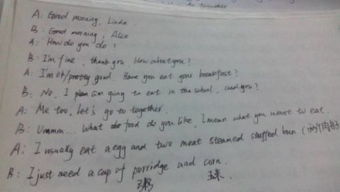 A: Good morning, Linda
B: Good morning, Alice
A: How do you do?
B: I'm fine, thank you. How about you?
A: I'm ok/pretty good. Have you eat your breakfast?
B: No, I am going to eat in the school, and you?
A: Me too, let's go to together.
B: Ummm... What food do you like, I mean what you want to eat.
A: I usually eat a egg and two meat steamed stuffed bun
B: I just need a cup of porridge and corn.
粥